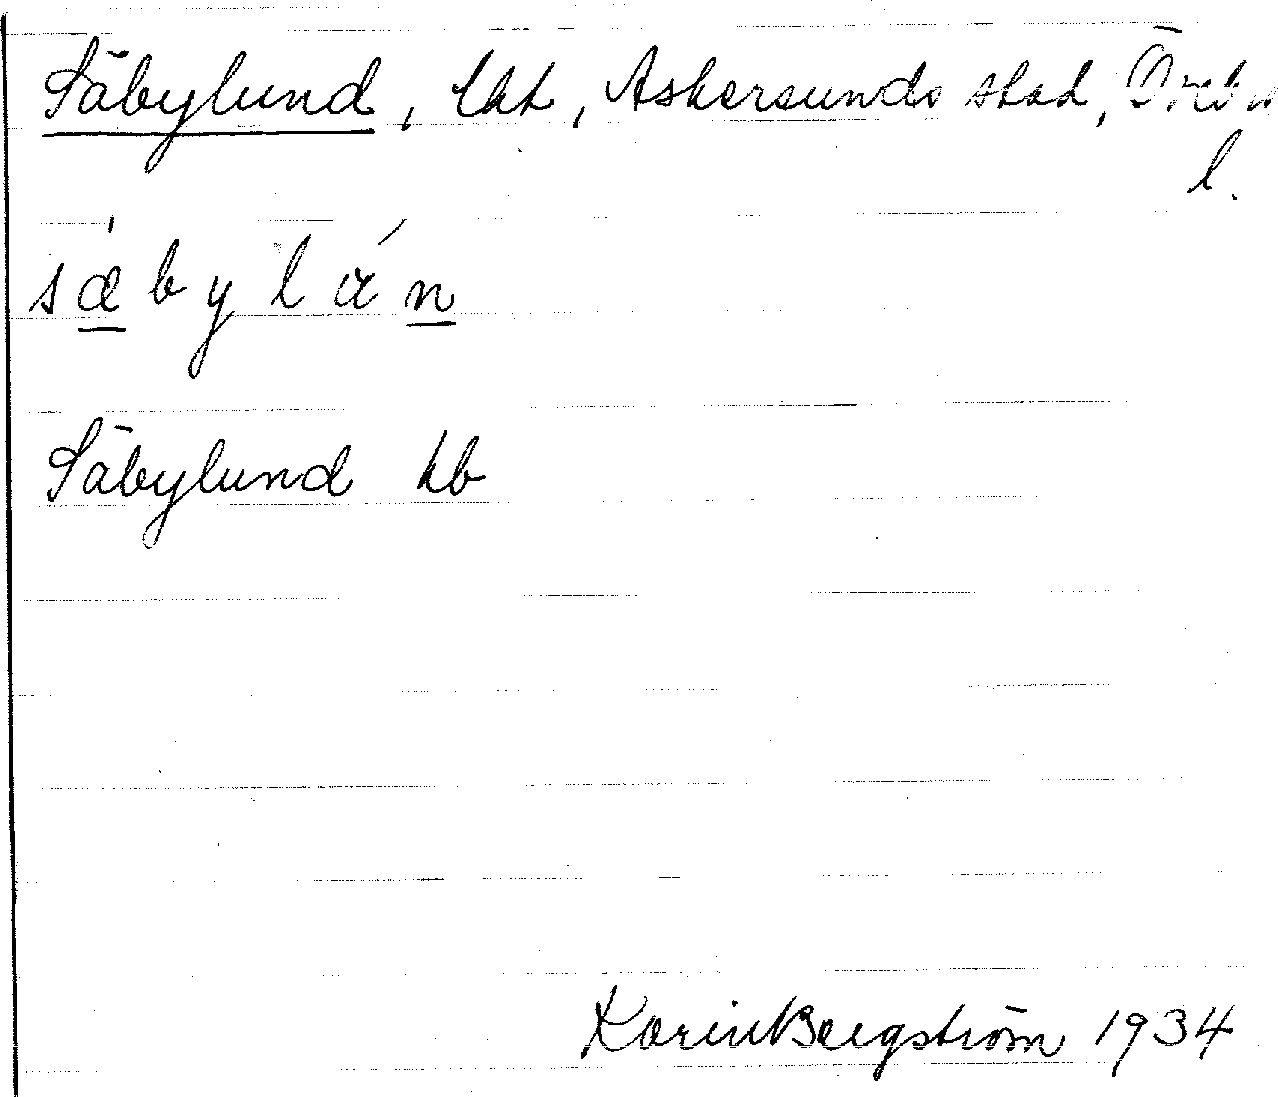 Säbylund, lht, Askersunds stad, Öreb
l.
sæbylún
Säbylund hb
Karin Bergström 1934